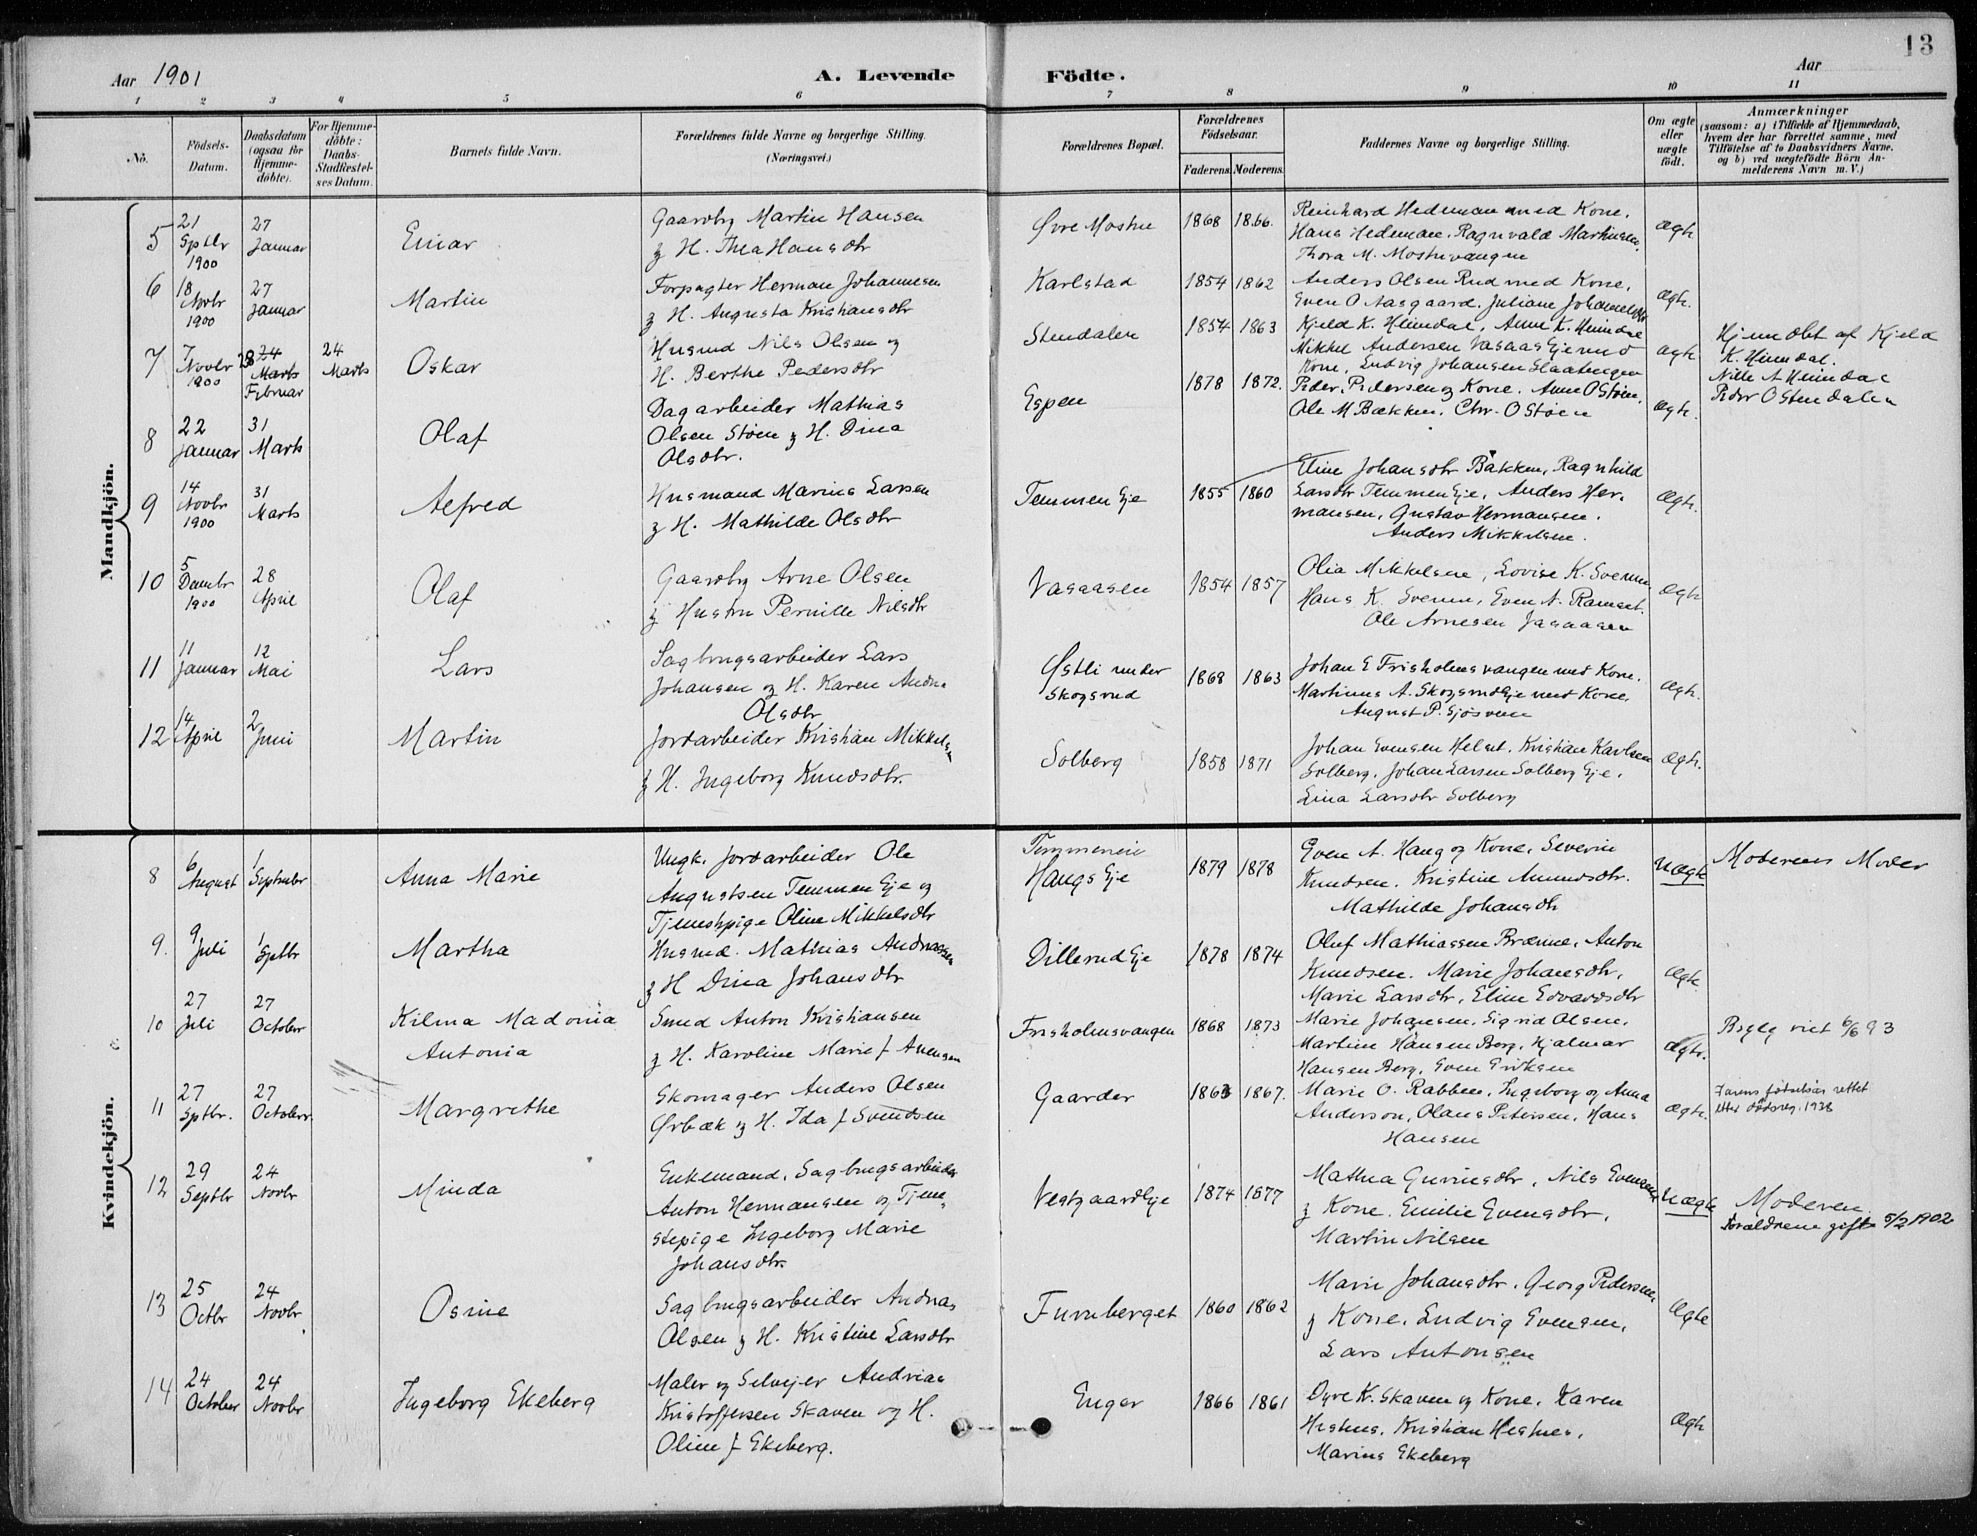 13
Aar 1901
A. Levende Födte.
Aar
1 2 3 4 5 6 7 8 9 10 11
No.
Födsels-Datum.
Daabsdatum (ogsaa for Hjemme-döbte).
For Hjemme-döbte: Daabs-Stadfæstel-ses Datum.
Barnets fulde Navn.
Forældrenes fulde Navne og borgerlige Stilling.
(Næringsvei.)
Forældrenes Bopæl.
Forældrenes Födselsaar.
Faderens. Moderens.
Faddernes Navne og borgerlige Stilling.
Om ægte eller uægte födt.
Anmærkninger
(saasom: a) i Tilfælde af Hjemmedaab, hvem der har forrettet samme, med Tilföielse af to Daabsvidners Navne, og b) ved uægtefödte Börn An-melderens Navn m. V.)
Mandkjön.
5
21 Sptbr 1900
27 Januar
Einar
Gaardbr Martin Hansen
og H. Thea Hansdtr
Øvre Mostue
1868 1866.
Reinhard Hedeman med Kone,
Hans Hedeman. Ragnvald Martinsen,
Thora M. Mostuvangen
Ægte
6
18 Novbr 1900
27 Januar
Martin
Forpagter Herman Johannesen
og H. Augusta Kristiansdtr
Karlstad
1854 1862
Anders Olsen Rud med Kone,
Even O Aasgaard, Juliane Johannesdtr
Ægte.
7
7 Novbr 1900
28 24 Marts Februar
24 Marts
Oskar
Husmd Nils Olsen og
H. Berthe Pedersdtr
Stendalen
1854 1863
Kjeld K. Heimdal, Anne K. Heimdal
Mikkel Andersen Vasaas Eje med
Kone, Ludvig Johansen Slaatengen
Ægte
Hjemdbt af Kjeld
K. Heimdal.
Nille A Heimdal
Peder O Stendalen
8
22 Januar
31 Marts
Olaf
Dagarbeider Mathias
Olsen Støen og H. Dina
Olsdtr.
Espen
1878 1872.
Peder Pedersen og Kone. Anne O Støen,
Ole M Bækken. Chr. O Støen
Ægte.
9
14 Novbr 1900
31 Marts
Alfred
Husmand Marius Larsen
og H. Mathilde Olsdtr
Temmen Eje
1855 1860
Eline Johansdtr Bakken, Ragnhild
Larsdtr Temmen Eje, Anders Her-
mansen, Gustav Hermansen.
Anders Mikkelsen.
Ægte.
10
5 Decmbr 1900
28 April
Olaf
Gaardbr Arne Olsen
og Hustru Pernille Nilsdtr
Vasaasen
1854 1857
Olia Mikkelsen, Lovise K. Sveum
Hans K. Sveum, Even N. Ramset.
Ole Arnesen Vasaasen
Ægte
11
11 Januar
12 Mai
Lars
Sagbrugsarbeider Lars
Johansen og H. Karen Andrea
Olsdtr
Østli under
Skogsrud
1868 1863
Johan E Frisholmsvangen med Kone.
Martinus A. Skogsrud Eje med Kone.
August P. Gjøsveen
Ægte.
12
14 April
2 Juni
Martin
Jordarbeider Kristian Mikkelsen
og H. Ingeborg Knudsdtr.
Solberg
1858 1871
Johan Evensen Helset, Kristian Karlsen
Solberg, Johan Larsen Solberg Eje,
Lina Larsdtr Solberg
Ægte.
Kvindekjön.
8
6 August
1 Septmber
Anna Marie
Ungk. Jordarbeider Ole
Augustsen Temmen Eje og
Tjenestpige Oline Mikkelsdtr
Haugs Eje
1879 1878
Even A. Haug og Kone, Severin
Knudsen. Kristine Amundsdtr.
Mathilde Johansdtr
Uægte
Moderens Moder
9.
9 Juli
1 Sptbr
Martha
Husmd. Mathias Andreassen
og H Dina Johansdtr
Dillerud Eje
1878 1874
Oluf Mathiassen Brænne, Anton
Knudsen. Marie Johansdtr,
Marie Larsdtr, Eline Edvardsdtr
Ægte
10
27 Juli
27 October
Kilma Madonia
Antonia
Smed Anton Kristiansen
og H. Karoline Marie f. Arnesen
Frisholmsvangen
1868 1873
Marie Johansen. Sigrid Olsen.
Martine Hansen Berg, Hjalmar
Hansen Berg, Even Eriksen
Ægte.
Bgflg viet 6/6 93
11
27 Sptbr.
27 October
Margrethe
Skomager Anders Olsen
Ørbæk og H. Ida f Svendsen
Gaarder
1863 1867.
Marie O. Rabben, Ingeborg og Anna
Anderson, Olaus Petersen, Hans
Hansen
Ægte.
Farens fødselsår rettet
etter dødsreg. 1938
12
29 Septbr
24 Novbr
Minda
Enkemand, Sagbrugsarbeider
Anton Hermansen og Tjene-
stepige Ingeborg Marie
Johansdtr.
Vestgaard Eje
1874 1877
Mathea Gurinsdtr, Nils Evensen
og Kone. Emilie Evensdtr,
Martin Nilsen
Uægte
Moderen.
Forældrene gift 5/2 1902
13
25 Octbr
24 Novbr
Osine
Sagbrugsarbeider Andreas
Olsen og H. Kristine Larsdtr
Furuberget
1860 1862
Marie Johansdtr. Georg Pedersen
og Kone. Ludvig Evensen,
Lars Antonsen
Ægte
14
24 October
24 Novbr
Ingeborg Ekeberg
Maler og Selvejer Andreas
Kristoffersen Skaven og H.
Oline f. Ekeberg.
Enger
1866 1861
Dyre K. Skaven og Kone. Karen
Hestnes. Kristian Hestnes.
Marius Ekeberg
Ægte